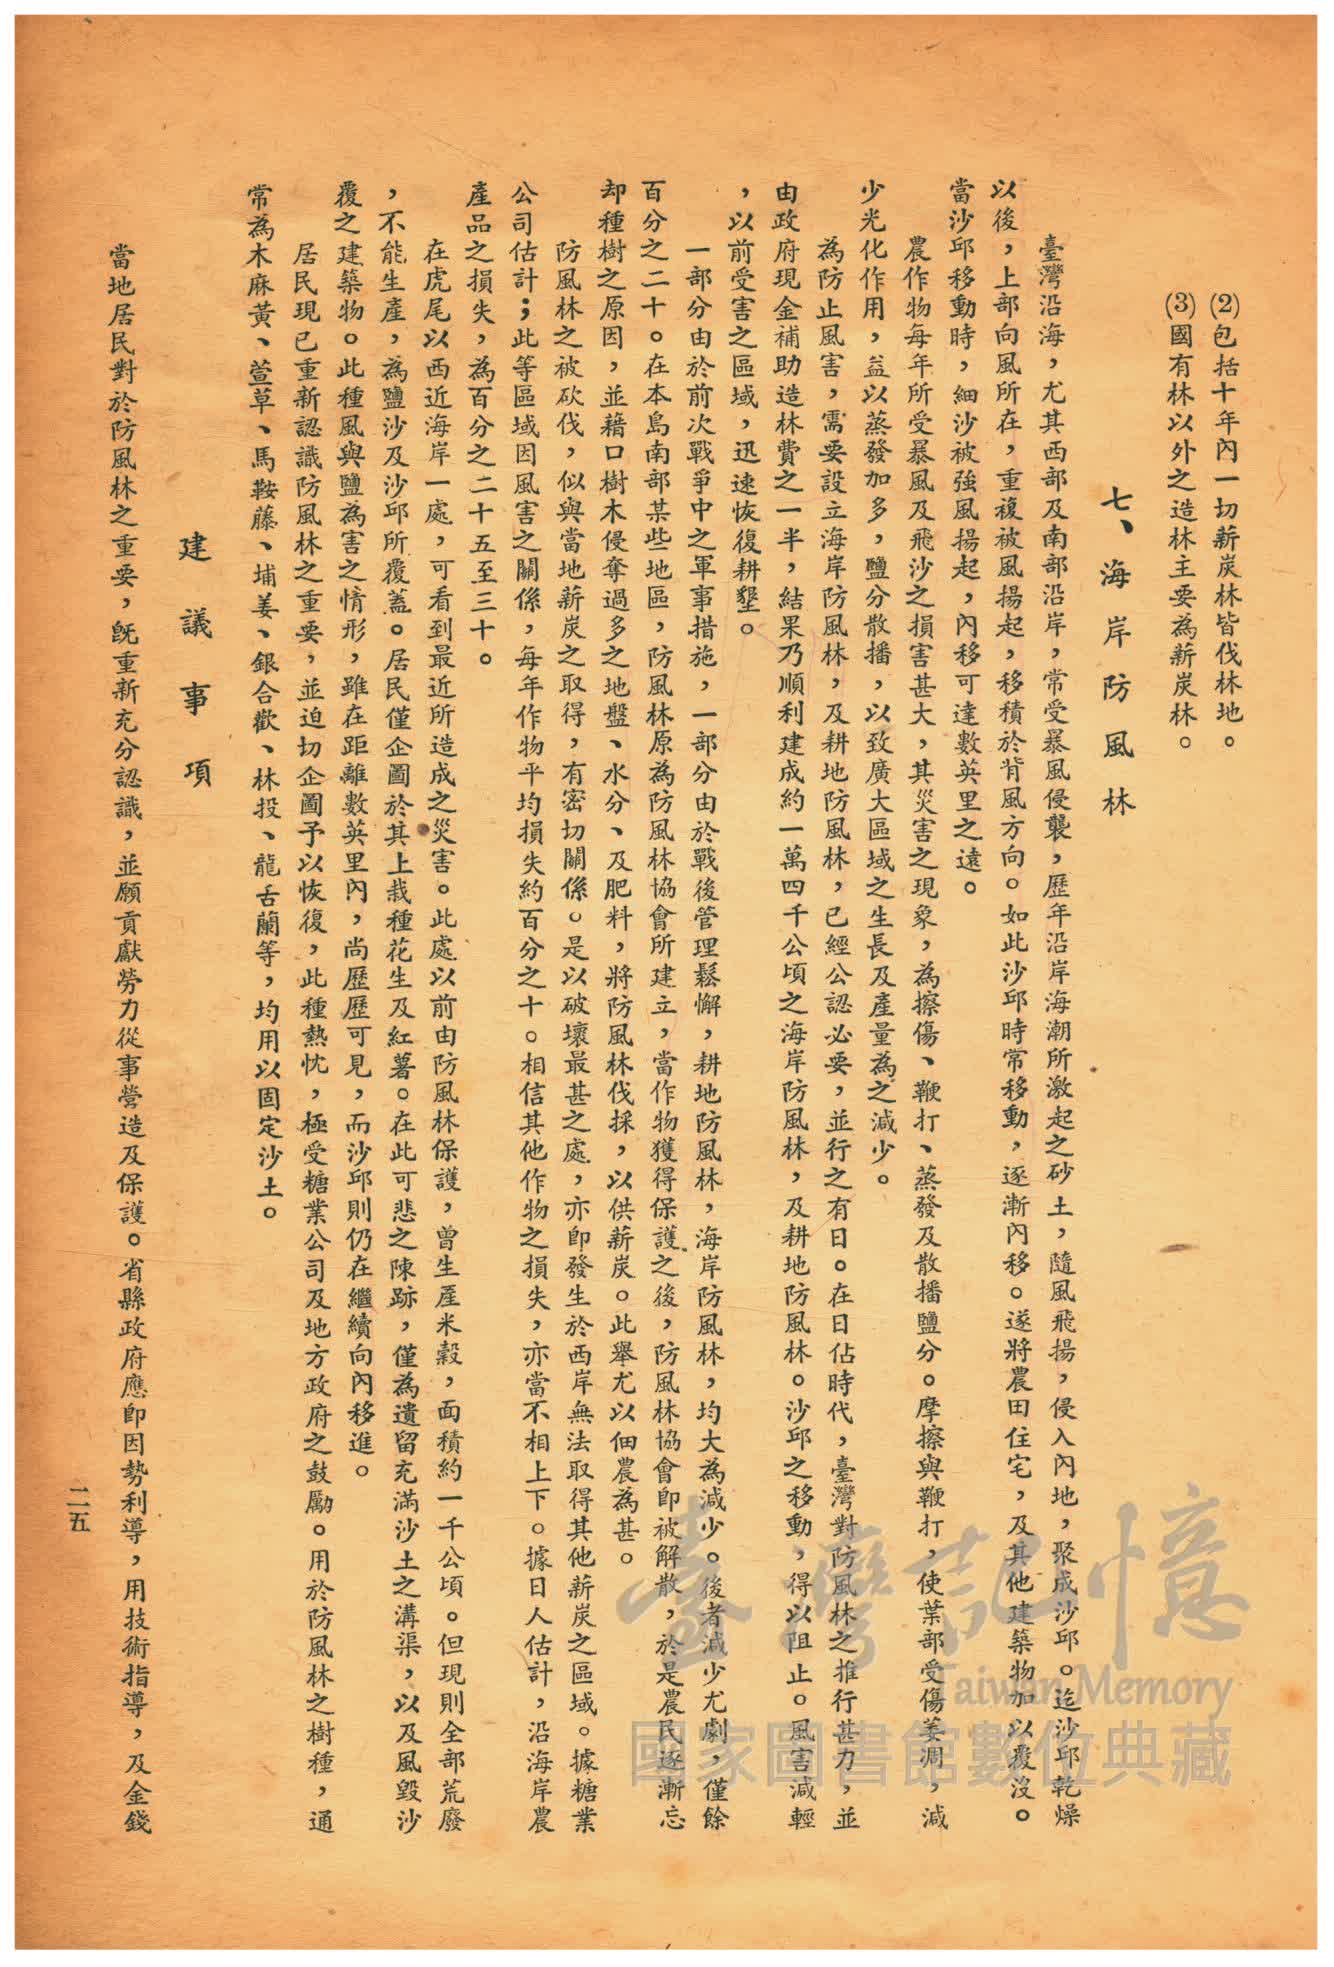 ⑵包括十年內一切薪炭林皆伐林地。
⑶國有林以外之造林主要為薪炭林。
七、海岸防風林
臺灣沿海，尤其西部及南部沿岸，常受暴風侵襲，歷年沿岸海潮所激起之砂土，隨風飛揚，侵入內地，聚成沙邱。迄沙邱乾燥
以後，上部向風所在，重複被風揚起，移積於背風方向。如此沙邱時常移動，逐漸內移。遂將農田住宅，及其他建築物加以覆沒。
當沙邱移動時，細沙被強風揚起，內移可達數英里之遠。
農作物每年所受暴風及飛沙之損害甚大，其災害之現象，為擦傷、鞭打、蒸發及散播鹽分。摩擦與鞭打，使葉部受傷萎凋，減
少光化作用，益以蒸發加多，鹽分散播，以致廣大區域之生長及產量為之減少。
為防止風害，需要設立海岸防風林，及耕地防風林，已經公認必要，並行之有日。在日佔時代，臺灣對防風林之推行甚力，並
由政府現金補助造林費之一半，結果乃順利建成約一萬四千公頃之海岸防風林，及耕地防風林。沙邱之移動，得以阻止。風害減輕
，以前受害之區域，迅速恢復耕墾。
一部分由於前次戰爭中之軍事措施，一部分由於戰後管理鬆懈，耕地防風林，海岸防風林，均大為減少。後者減少尤劇，僅餘
百分之二十。在本島南部某些地區，防風林原為防風林協會所建立，當作物獲得保護之後，防風林協會即被解散，於是農民逐漸忘
却種樹之原因，並藉口樹木侵奪過多之地盤、水分、及肥料，將防風林伐採，以供薪炭。此舉尤以佃農為甚。
防風林之被砍伐，似與當地薪炭之取得，有密切關係。是以破壞最甚之處，亦即發生於西岸無法取得其他薪炭之區域。據糖業
公司估計；此等區域因風害之關係，每年作物平均損失約百分之十。相信其他作物之損失，亦當不相上下。據日人估計，沿海岸農
產品之損失，為百分之二十五至三十。
在虎尾以西近海岸一處，可看到最近所造成之災害。此處以前由防風林保護，曾生產米穀，面積約一千公頃。但現則全部荒廢
，不能生產，為鹽沙及沙邱所覆蓋。居民僅企圖於其上栽種花生及紅薯。在此可悲之陳跡，僅為遺留充滿沙土之溝渠，以及風毀沙
覆之建築物。此種風與鹽為害之情形，雖在距離數英里內，尚歷歷可見，而沙邱則仍在繼續向內移進。
居民現已重新認識防風林之重要，並迫切企圖予以恢復，此種熱忱，極受糖業公司及地方政府之鼓勵。用於防風林之樹種，通
常為木麻黃、萱草、馬鞍藤、埔姜、銀合歡、林投、龍舌蘭等，均用以固定沙土。
建議事項
當地居民對於防風林之重要，旣重新充分認識，並願貢獻勞力從事營造及保護。省縣政府應即因勢利導，用技術指導，及金錢
二五
臺灣記憶
Taiwan Memory
國家圖書館數位典藏